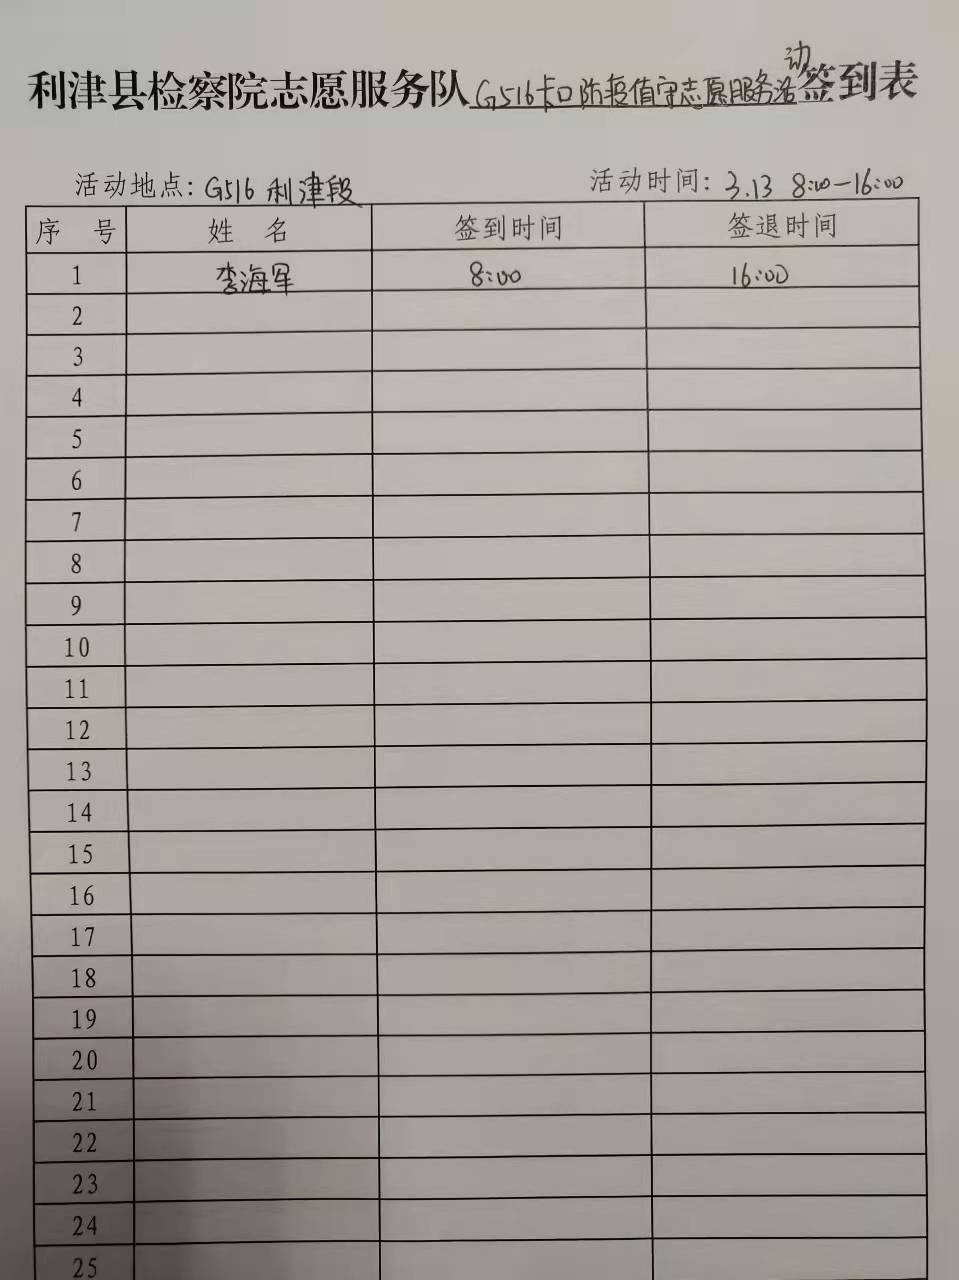 利津县检察院志愿服务队G516卡口防疫值守志愿服务活动签到表
活动地点：G516 利津段 活动时间：3.13 8:00-16:00
序 号 姓 名 签到时间 签退时间
1 李海军 8:00 16:00
2
3
4
5
6
7
8
9
10
11
12
13
14
15
16
17
18
19
20
21
22
23
24
25